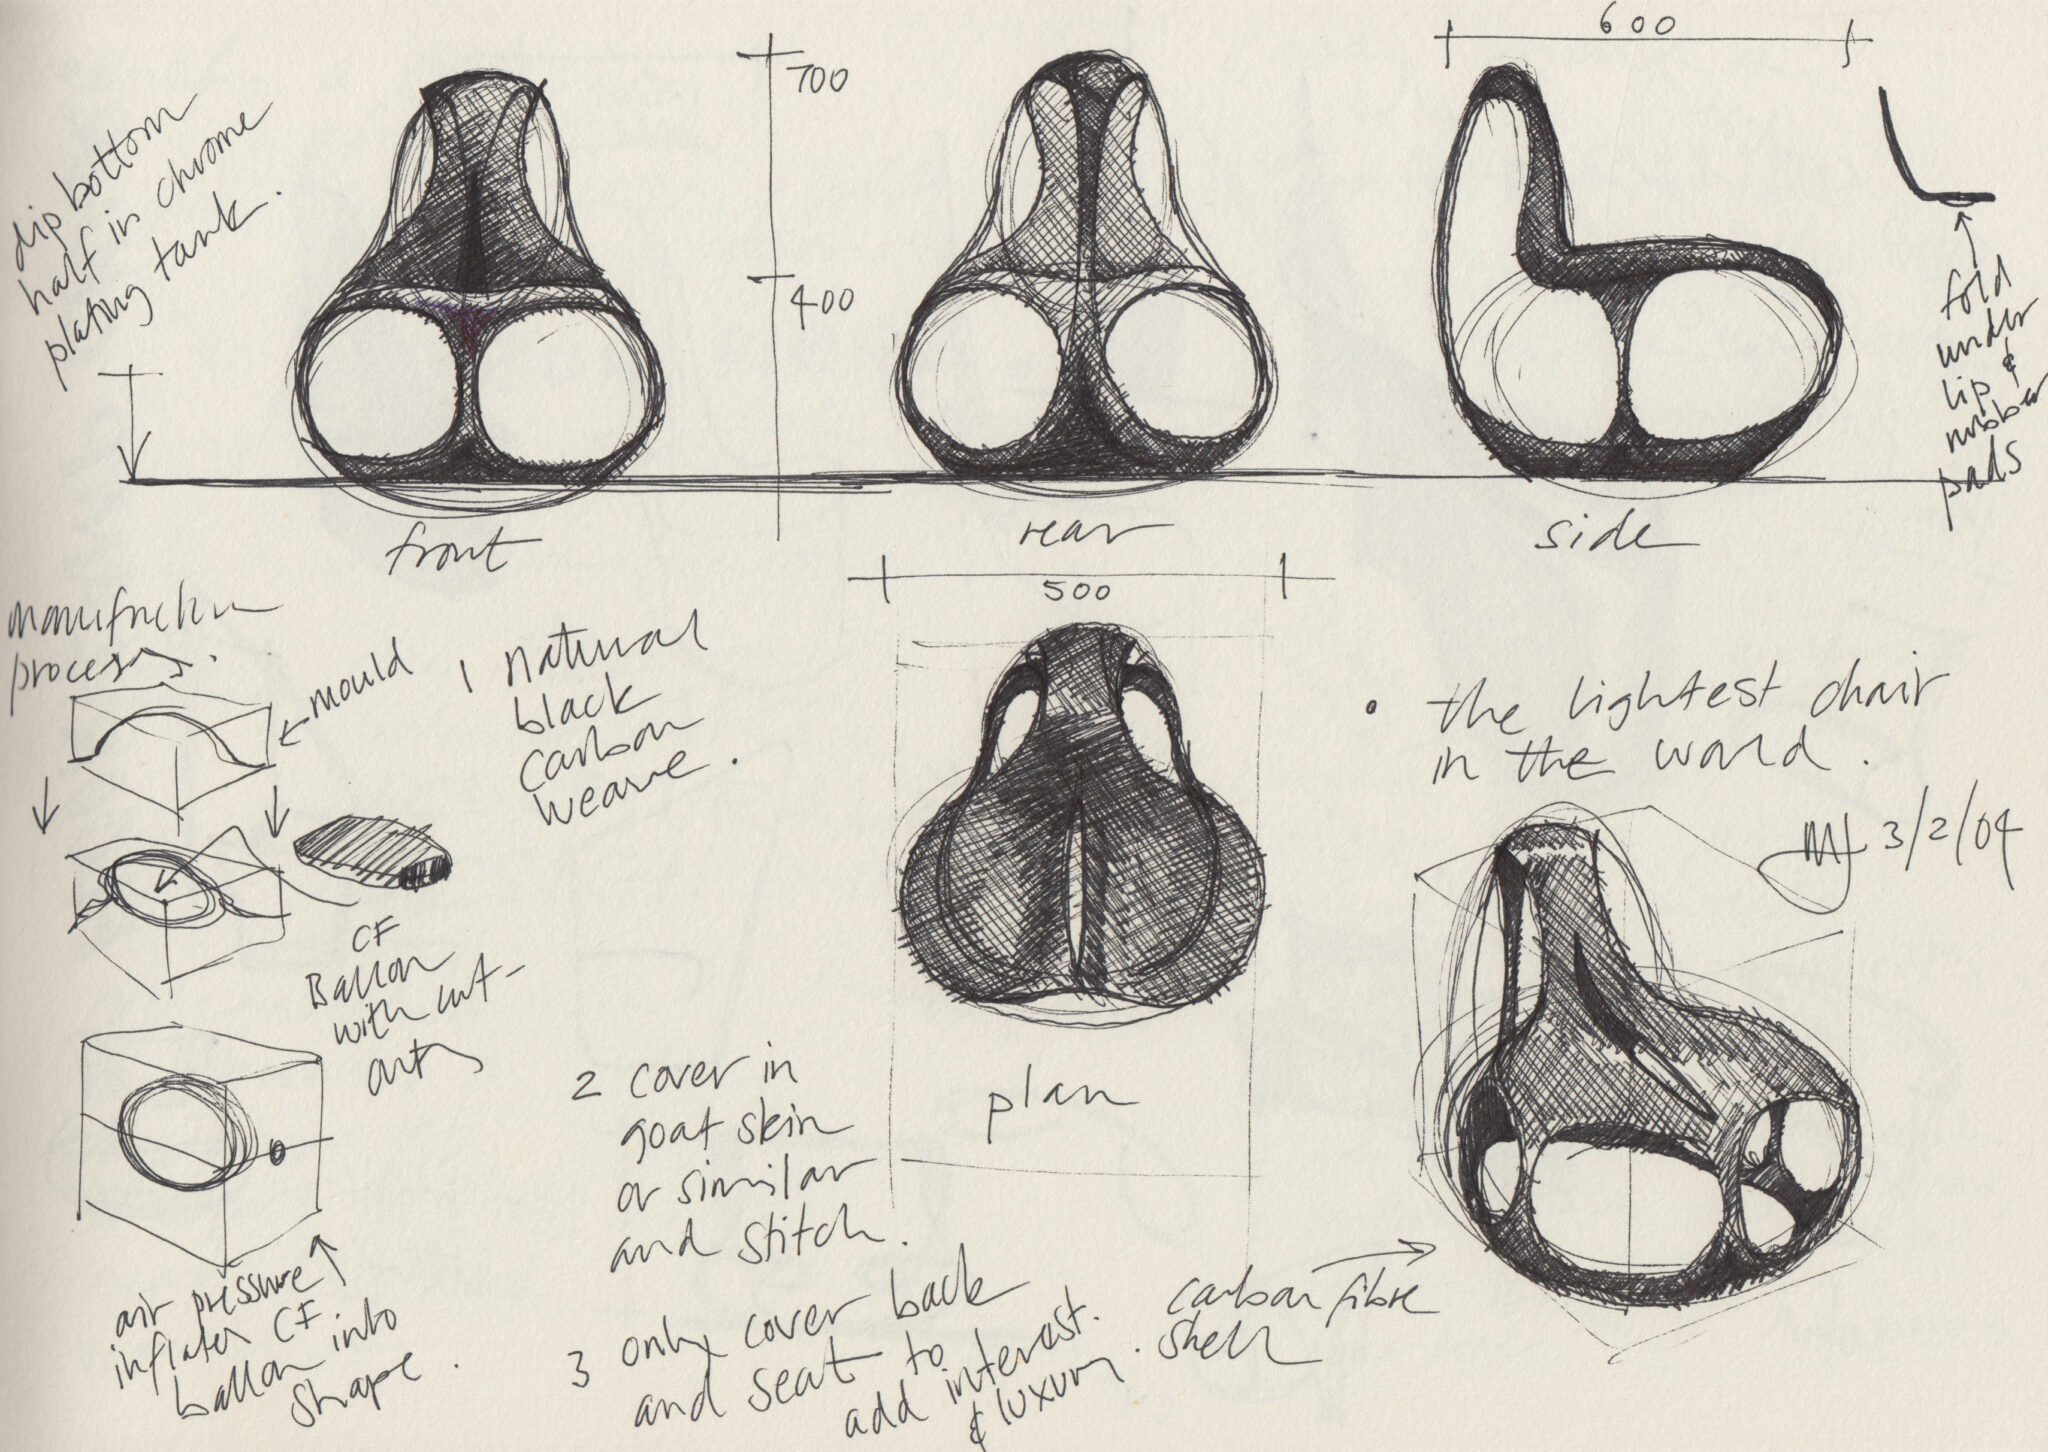 600
700
dip bottom
half in chrome
plating tank.
400
fold
under
lip &
rubber
pads
front
rear
side
500
manufacturing
process.
mould
1 natural
black
carbon
weave.
• the lightest chair
in the world.
3/2/04
CF
Ballon
with cut-
outs
2 cover in
goat skin
or similar
and stitch.
plan
air pressure
inflates CF
ballon into
shape.
3 only cover back
and seat to
add interest.
& luxury.
carbon fibre
shell